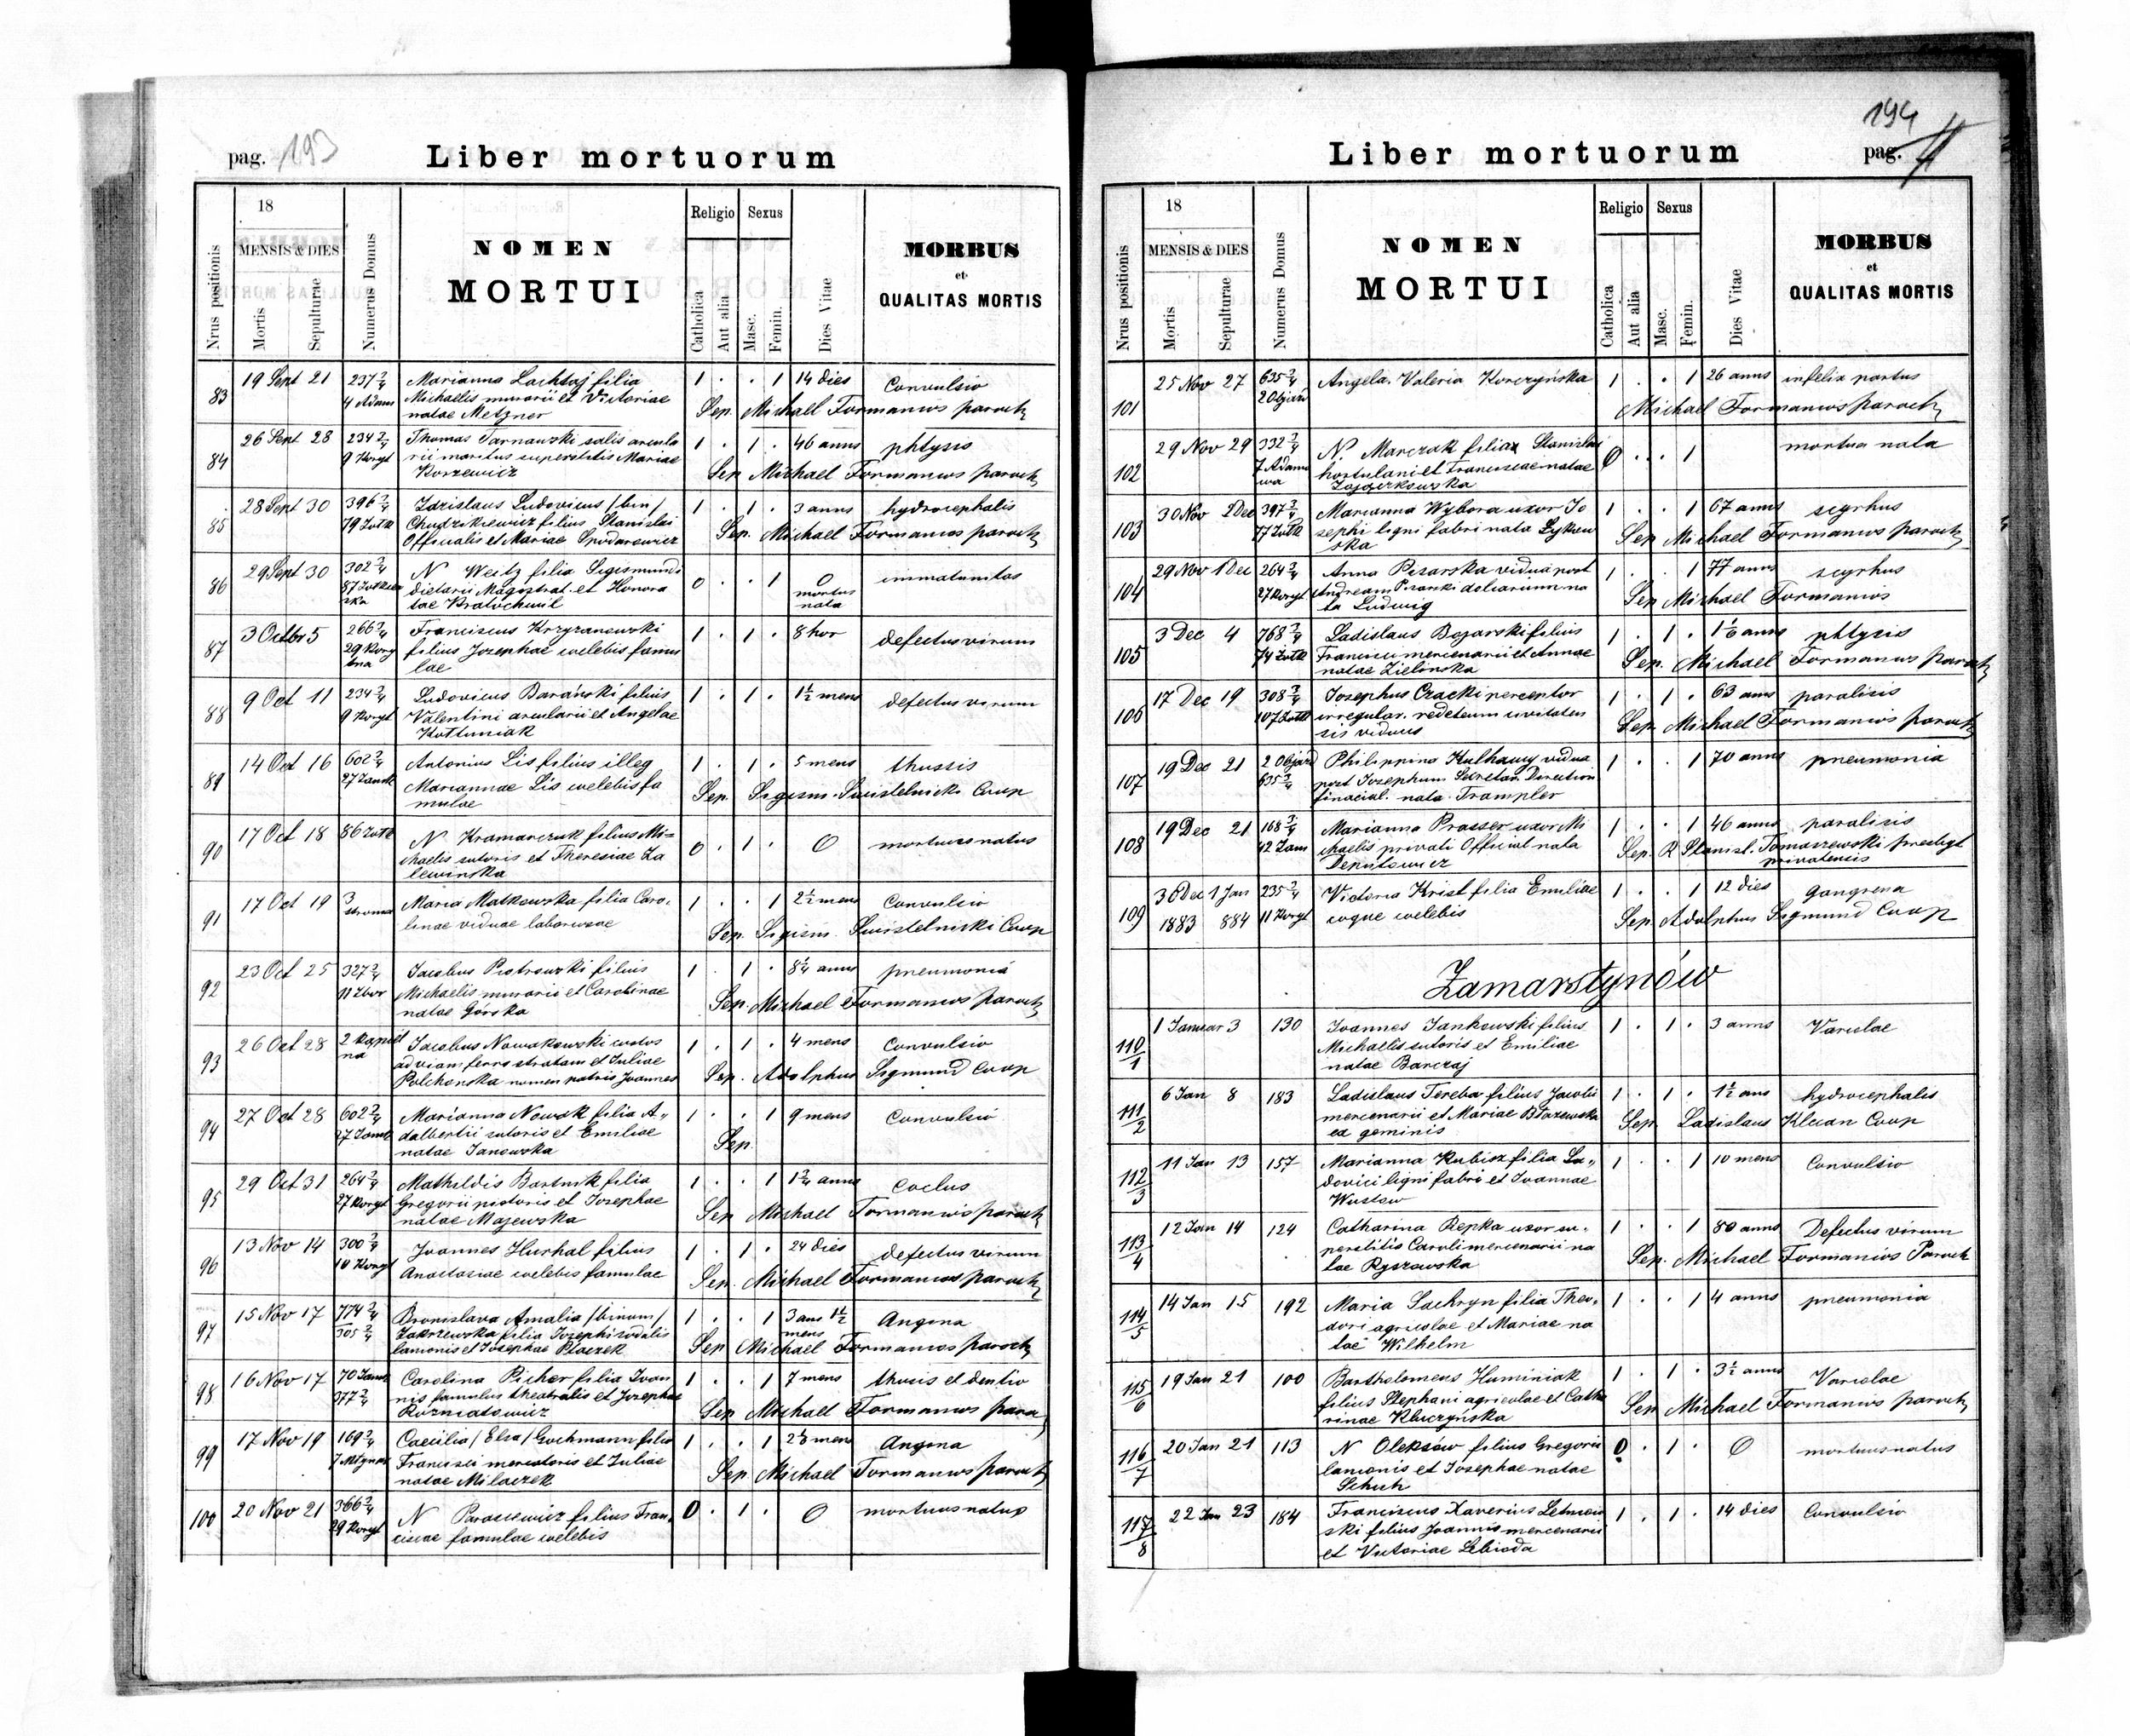 pag. 193
Liber mortuorum
Nrus positionis
18
MENSIS & DIES
Mortis
Sepulturae
Numerus Domus
NOMEN
MORTUI
Religio
Catholica
Aut alia
Sexus
Masc.
Femin.
Dies Vitae
MORBUS
et
QUALITAS MORTIS
83 19 Sept 21 237 2/4 Marianna Lachtaj filia 1 . . 1 14 dies Convulsio
4 Adam Michaelis murarii et Victoriae
natae Metzner Sep. Michael Formanios paroch
84 26 Sept 28 234 2/4 Thomas Tarnawski salis arcula 1 . 1 . 46 anns phtysis
9 Koryt rii maritus superstitis Mariae
Korzewicz Sep Michael Formanios paroch
85 28 Sept 30 396 2/4 Zdzislaus Ludovicus /bin/ 1 . 1 . 3 anns hydrocephalis
79 Zołk Chudzikiewicz filius Stanislai
Officialis et Mariae Spodarewicz Sep. Michael Formanios paroch
86 29 Sept 30 302 2/4 N Weitz filia Sigismundi 0 . . 1 0 immaturitas
87 dietarii Magistrat. et Honora mortua
tae Bratochwil nata
87 3 Octbr 5 266 2/4 Franciscus Krzyzanowski 1 . 1 . 8 hor defectus virium
29 Kory filius Josephae coelebis famu
tna lae
88 9 Oct 11 234 2/4 Ludovicus Barański filius 1 . 1 . 1 1/2 mens defectus virium
9 Koryt Valentini arcularii et Angelae
Kottuniak
89 14 Oct 16 602 2/4 Antonius Lis filius illeg 1 . 1 . 5 mens thussis
27 Zamk Mariannae Lis coelebis fa
mulae Sep Sigism. Swistelnicki Coop
90 17 Oct 18 86 Zołk N Kramarczuk filius Mi= 0 . 1 . 0 mortuus natus
chaelis sutoris et Theresiae Za
lewinska
91 17 Oct 19 3 Maria Matkowska filia Caro. 1 . . 1 2 1/2 mens Convulsio
stroma linae viduae laboriosae Sep. Sigism. Swistelnicki Coop
92 23 Oct 25 327 2/4 Jacobus Piotrowski filius 1 . 1 . 8 1/4 anns pneumonia
11 Zbor Michaelis murarii et Carolinae
natae Górska Sep. Michael Formanios paroch
93 26 Oct 28 2 Jacobus Nowakowski custos 1 . 1 . 4 mens Convulsio
na ad viam ferro stratam et Juliae
Polchonska nomen patris Joannes Sep. Adolphus Sigmund Coop
94 27 Oct 28 602 2/4 Marianna Nowak filia A„ 1 . . 1 9 mens Convulsio
27 Zamk dalbertii sutoris et Emiliae
natae Janowska Sep
95 29 Oct 31 264 2/4 Mathildis Bartnik filia 1 . . 1 1 2/4 anns Coclus
27 Koryt Gregorii pistoris et Josephae
natae Majewska Sep Michael Formanios paroch
96 13 Nov 14 300 2/4 Joannes Hurhal filius 1 . 1 . 24 dies defectus virium
10 Koryt Anastasiae coelebis famulae Sep. Michael Formanios paroch
97 15 Nov 17 774 2/4 Bronislava Amalia /binom/ 1 . . 1 3 ans 1 1/2 Angina
305 2/4 Zakrzewska filia Josephi sodalis mens
lanionis et Josephae Płaczek Sep Michael Formanios paroch
98 16 Nov 17 70 Janow Carolina Picher filia Joan 1 . . 1 7 mens thusis et dentio
977 2/4 nis famulus theatralis et Josephae
Kuzniatowicz Sep Michael Formanios paro
99 17 Nov 19 169 2/4 Caecilia /Elsa/ Gochmann filia 1 . . 1 2 1/3 mens Angina
7 Młynar Francisci mercatoris et Juliae
natae Milaczek Sep Michael Formanios paroch
100 20 Nov 21 366 2/4 N Parasiewicz filius Fran. 0 . 1 . 0 mortuus natus
29 Koryt ciscae famulae coelebis
194
pag.
Liber mortuorum
Nrus positionis
18
MENSIS & DIES
Mortis
Sepulturae
Numerus Domus
NOMEN
MORTUI
Religio
Catholica
Aut alia
Sexus
Masc.
Femin.
Dies Vitae
MORBUS
et
QUALITAS MORTIS
101 25 Nov 27 635 2/4 Angela. Valeria Korczyńska 1 . . 1 26 anns infelix partus
2 Objazd Michael Formanios paroch
102 29 Nov 29 332 2/4 N. Marczak filia Stanislai 0 . . 1 mortua nata
7 Adamo hortulani et Franciscae natae
wa Zajączkowska
103 30 Nov 2 Dec 397 2/4 Marianna Wybora uxor Jo 1 . . 1 67 anns scyrhus
77 Zołk sephi ligni fabri nata Łyków
ska Sep Michael Formanios paroch
104 29 Nov 1 Dec 264 2/4 Anna Pisarska vidua post 1 . . 1 77 anns scyrhus
27 Koryt Andream Pisarski doliarium na
ta Ludwig Sep Michael Formanios
105 3 Dec 4 768 2/4 Ladislaus Bojarski filius 1 . 1 . 1 1/6 anns phtysis
74 Zołk Francisci mercenarii et Annae
natae Zielinska Sep. Michael Formanios paroch
106 17 Dec 19 308 2/4 Josephus Cracki percentor 1 . 1 . 63 anns paralisis
107 Zołk irregular. redeteum civitaten
sis viduus Sep. Michael Formanios paroch
107 19 Dec 21 2 Objazd Philippina Kulhawy vidua 1 . . 1 70 anns pneumonia
635 2/4 post Josephum Secretar. Direction
finacial. nata Trampler
108 19 Dec 21 168 2/4 Marianna Prosser uxor Mi 1 . . 1 46 anns paralisis
42 Zam chaelis privati Official nata
Deputowicz Sep. R Stanisl. Tomaszewski presbyt
privatensis
109 30 Dec 1 Jan 235 2/4 Victoria Krist filia Emiliae 1 . . 1 12 dies gangrena
1883 884 11 Koryt coque coelebis Sep Adolphus Sigmund Coop
Zamarstynów
110/1 1 Januar 3 130 Joannes Jankowski filius 1 . 1 . 3 anns Variolae
Michaelis sutoris et Emiliae
natae Barczaj
111/2 6 Jan 8 183 Ladislaus Tereba filius Jacobi 1 . 1 . 1 1/2 ans hydrocephalis
mercenarii et Mariae Błazewska
ex geminis Sep. Ladislaus Klean Coop
112/3 11 Jan 13 157 Marianna Kubisz filia Lu„ 1 . . 1 10 mens Convulsio
dovici ligni fabri et Joannae
Wustow
113/4 12 Jan 14 124 Catharina Repka uxor su. 1 . . 1 80 anns Defectus virium
perstitis Caroli mercenarii na
tae Ryszowska Sep. Michael Formanios Paroch
114/5 14 Jan 15 192 Maria Sachryn filia Theo. 1 . . 1 4 anns pneumonia
dori agricolae et Mariae na
tae Wilhelm
115/6 19 Jan 21 100 Bartholomeus Huminiak 1 . 1 . 3 1/2 anns Variolae
filius Stephani agricolae et Catha
rinae Kluczyńska Sep Michael Formanios paroch
116/7 20 Jan 21 113 N Oleksów filius Gregorii 0 . 1 . 0 mortuus natus
lanionis et Josephae natae
Schuh
117/8 22 Jan 23 184 Franciscus Xaverius Letnicow 1 . 1 . 14 dies Convulsio
ski filius Joannis mercenarii
et Victoriae Lebioda